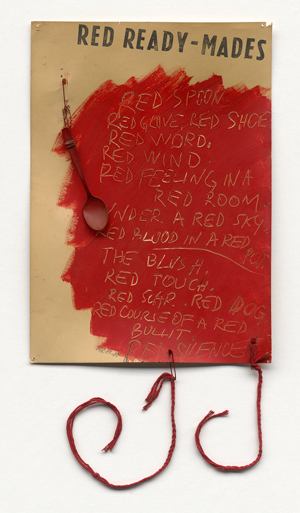 RED READY-MADES
RED SPOON
RED GLOVE RED SHOE
RED WORD.
RED WIND.
RED FEELING IN A
RED ROOM.
UNDER A RED SKY.
RED BLOOD IN A RED
POT.
THE BLUSH.
RED TOUCH.
RED SCAR. RED DOG
RED COURSE OF A RED
BULLIT
RED SILENCE